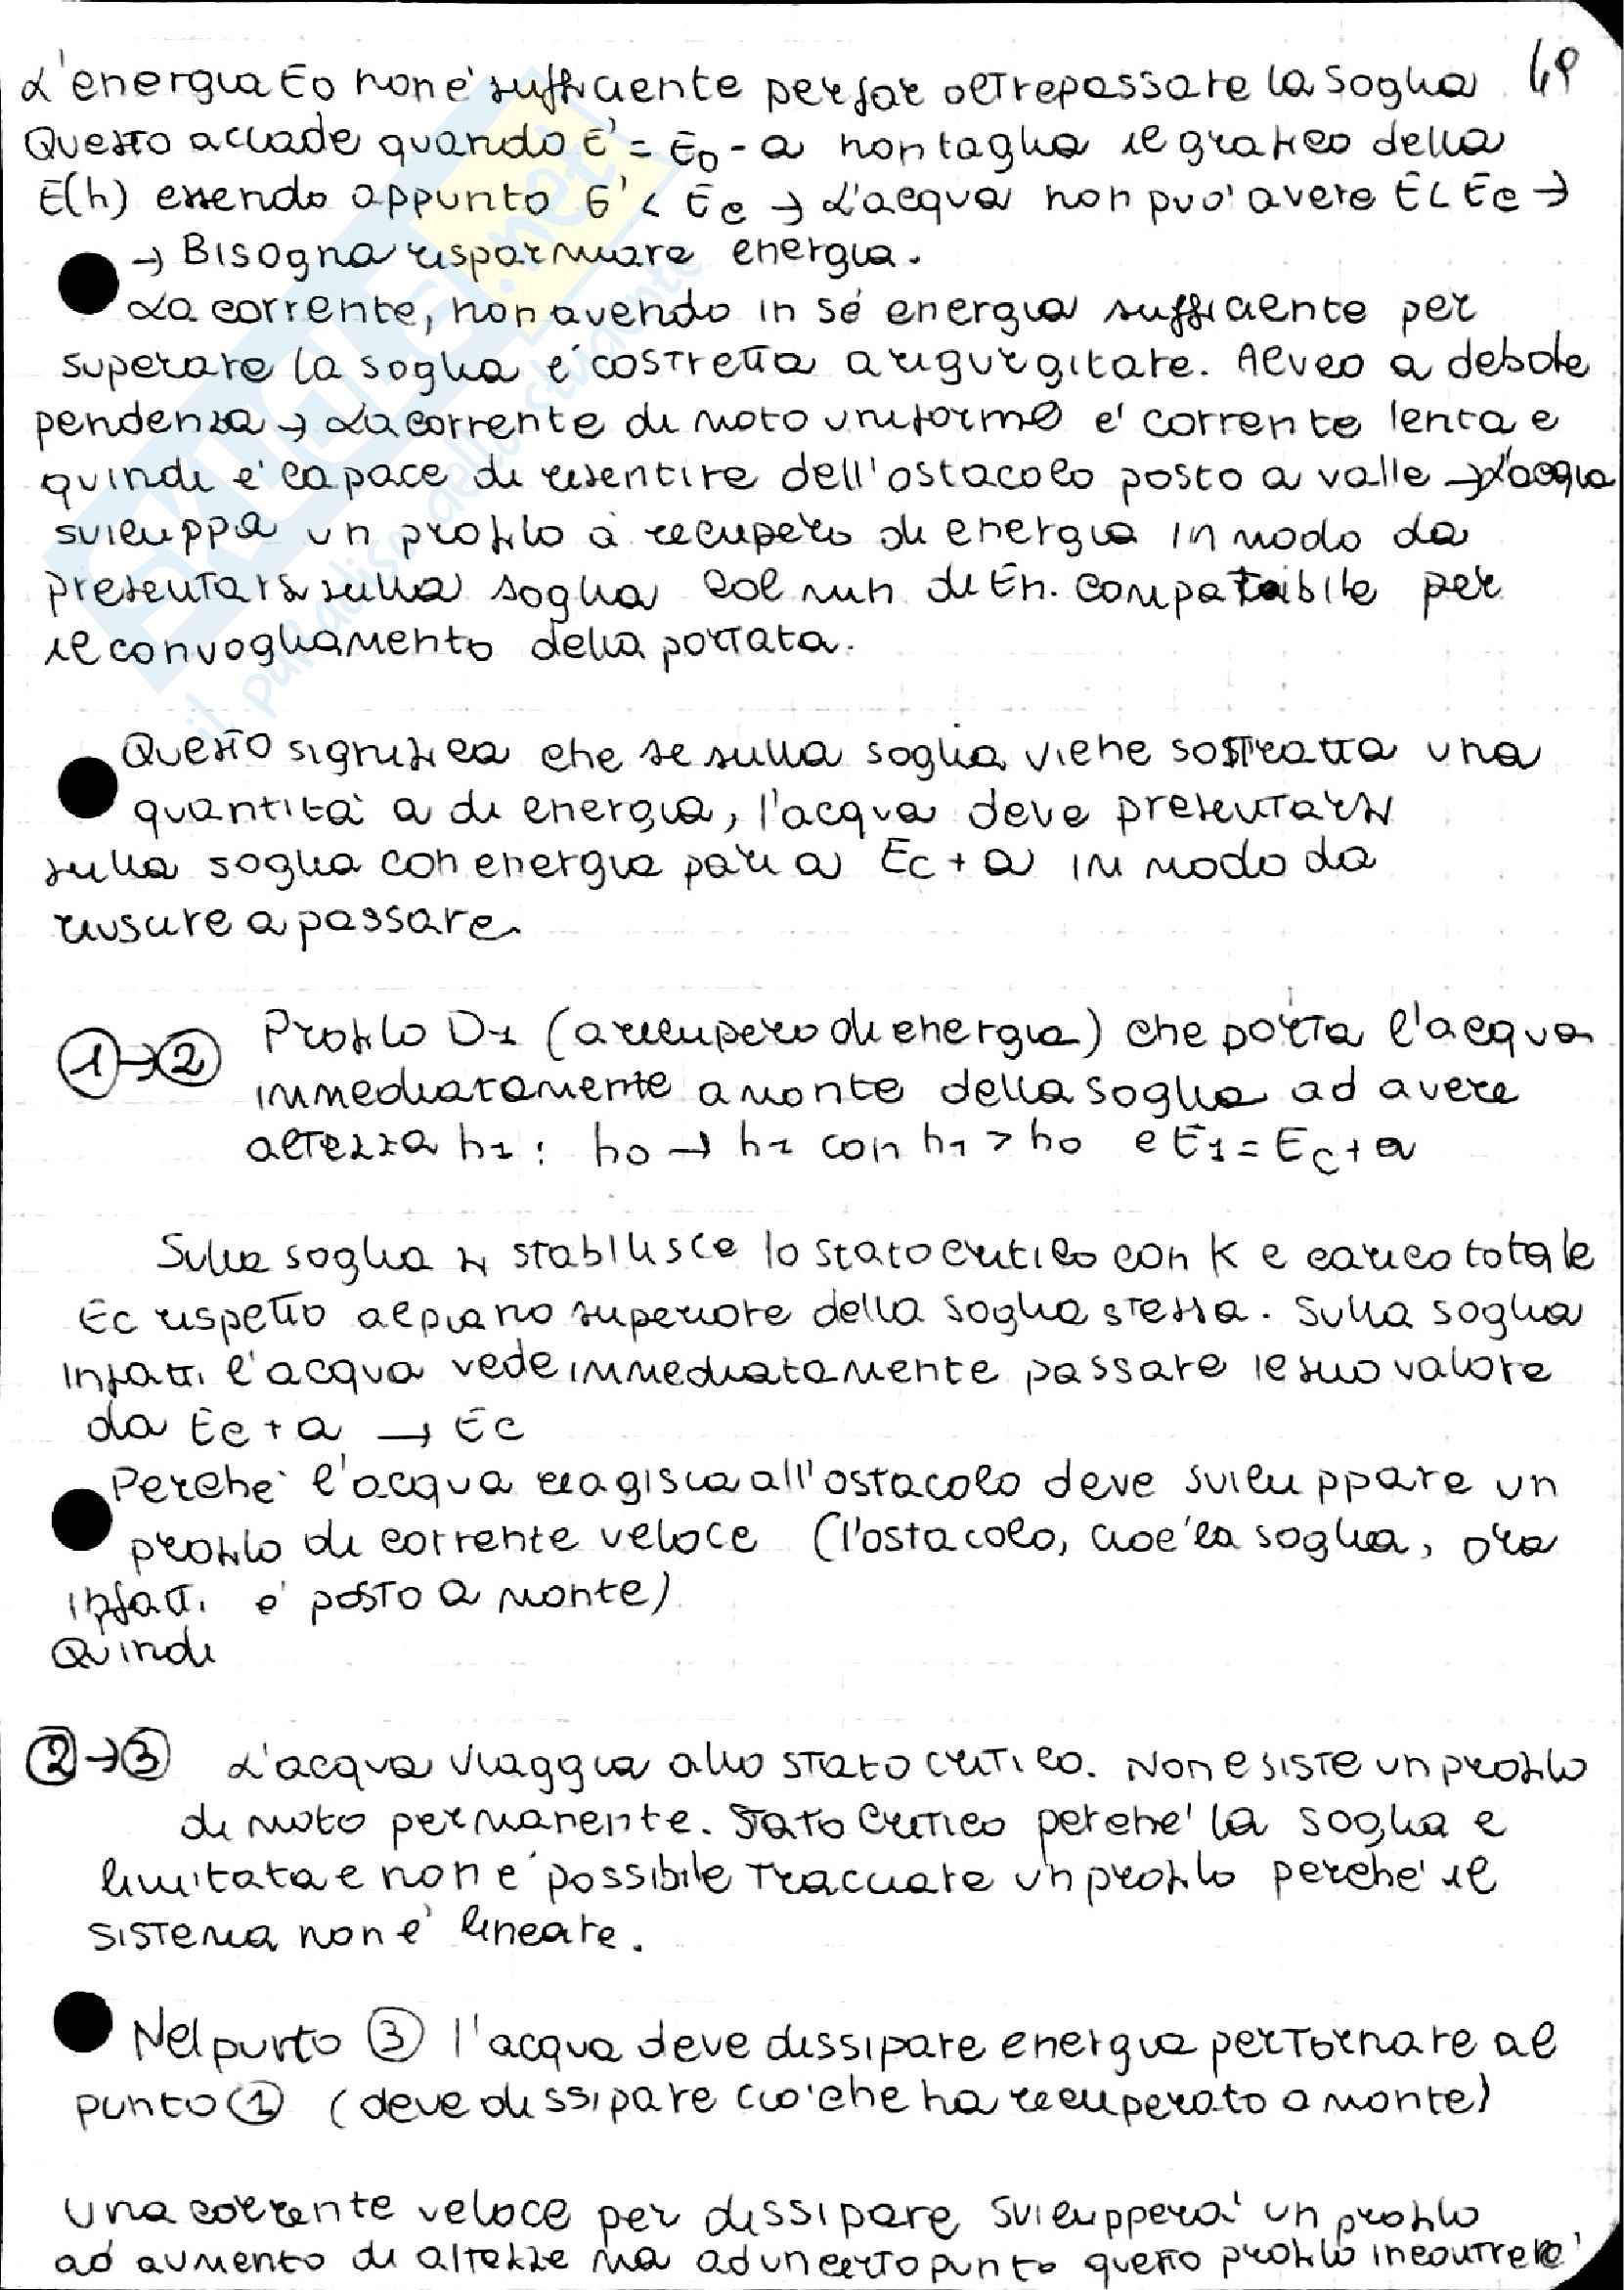 L'energia E0 non è sufficiente per far oltrepassare la soglia 49
Questo accade quando E' = E0 - a non taglia il grafico della
E(h) essendo appunto E' < Ec → L'acqua non può avere E<Ec →
→ Bisogna risparmiare energia.
La corrente, non avendo in sé energia sufficiente per
superare la soglia è costretta a rigurgitare. Alveo a debole
pendenza → La corrente di moto uniforme e' corrente lenta e
quindi e' capace di risentire dell'ostacolo posto a valle → L'acqua
sviluppa un profilo a recupero di energia in modo da
presentarsi sulla soglia col min di En. compatibile per
il convogliamento della portata.
Questo significa che se sulla soglia viene sottratta una
quantità a di energia, l'acqua deve presentarsi
sulla soglia con energia pari a Ec + a in modo da
riuscire a passare.
1→2 Profilo D1 (a recupero di energia) che porta l'acqua
immediatamente a monte della soglia ad avere
altezza h1 : h0 → h1 con h1 > h0 e E1 = Ec + a
Sulla soglia si stabilisce lo stato critico con K e carico totale
Ec rispetto al piano superiore della soglia stessa. Sulla soglia
infatti l'acqua vede immediatamente passare il suo valore
da Ec + a → Ec
Perchè l'acqua reagisca all'ostacolo deve sviluppare un
profilo di corrente veloce (l'ostacolo, cioè la soglia, ora
infatti e' posto a monte)
Quindi
2→3 L'acqua viaggia allo stato critico. Non esiste un profilo
di moto permanente. Stato Critico perche' la soglia e
limitata e non e' possibile tracciare un profilo perche' il
sistema non e' lineare.
Nel punto 3 l'acqua deve dissipare energia per tornare al
punto 1 (deve dissipare ciò che ha recuperato a monte)
Una corrente veloce per dissipare svilupperà un profilo
ad aumento di altezze ma ad un certo punto questo profilo incontrerà
SKUOLA.net
il paradiso dello studente